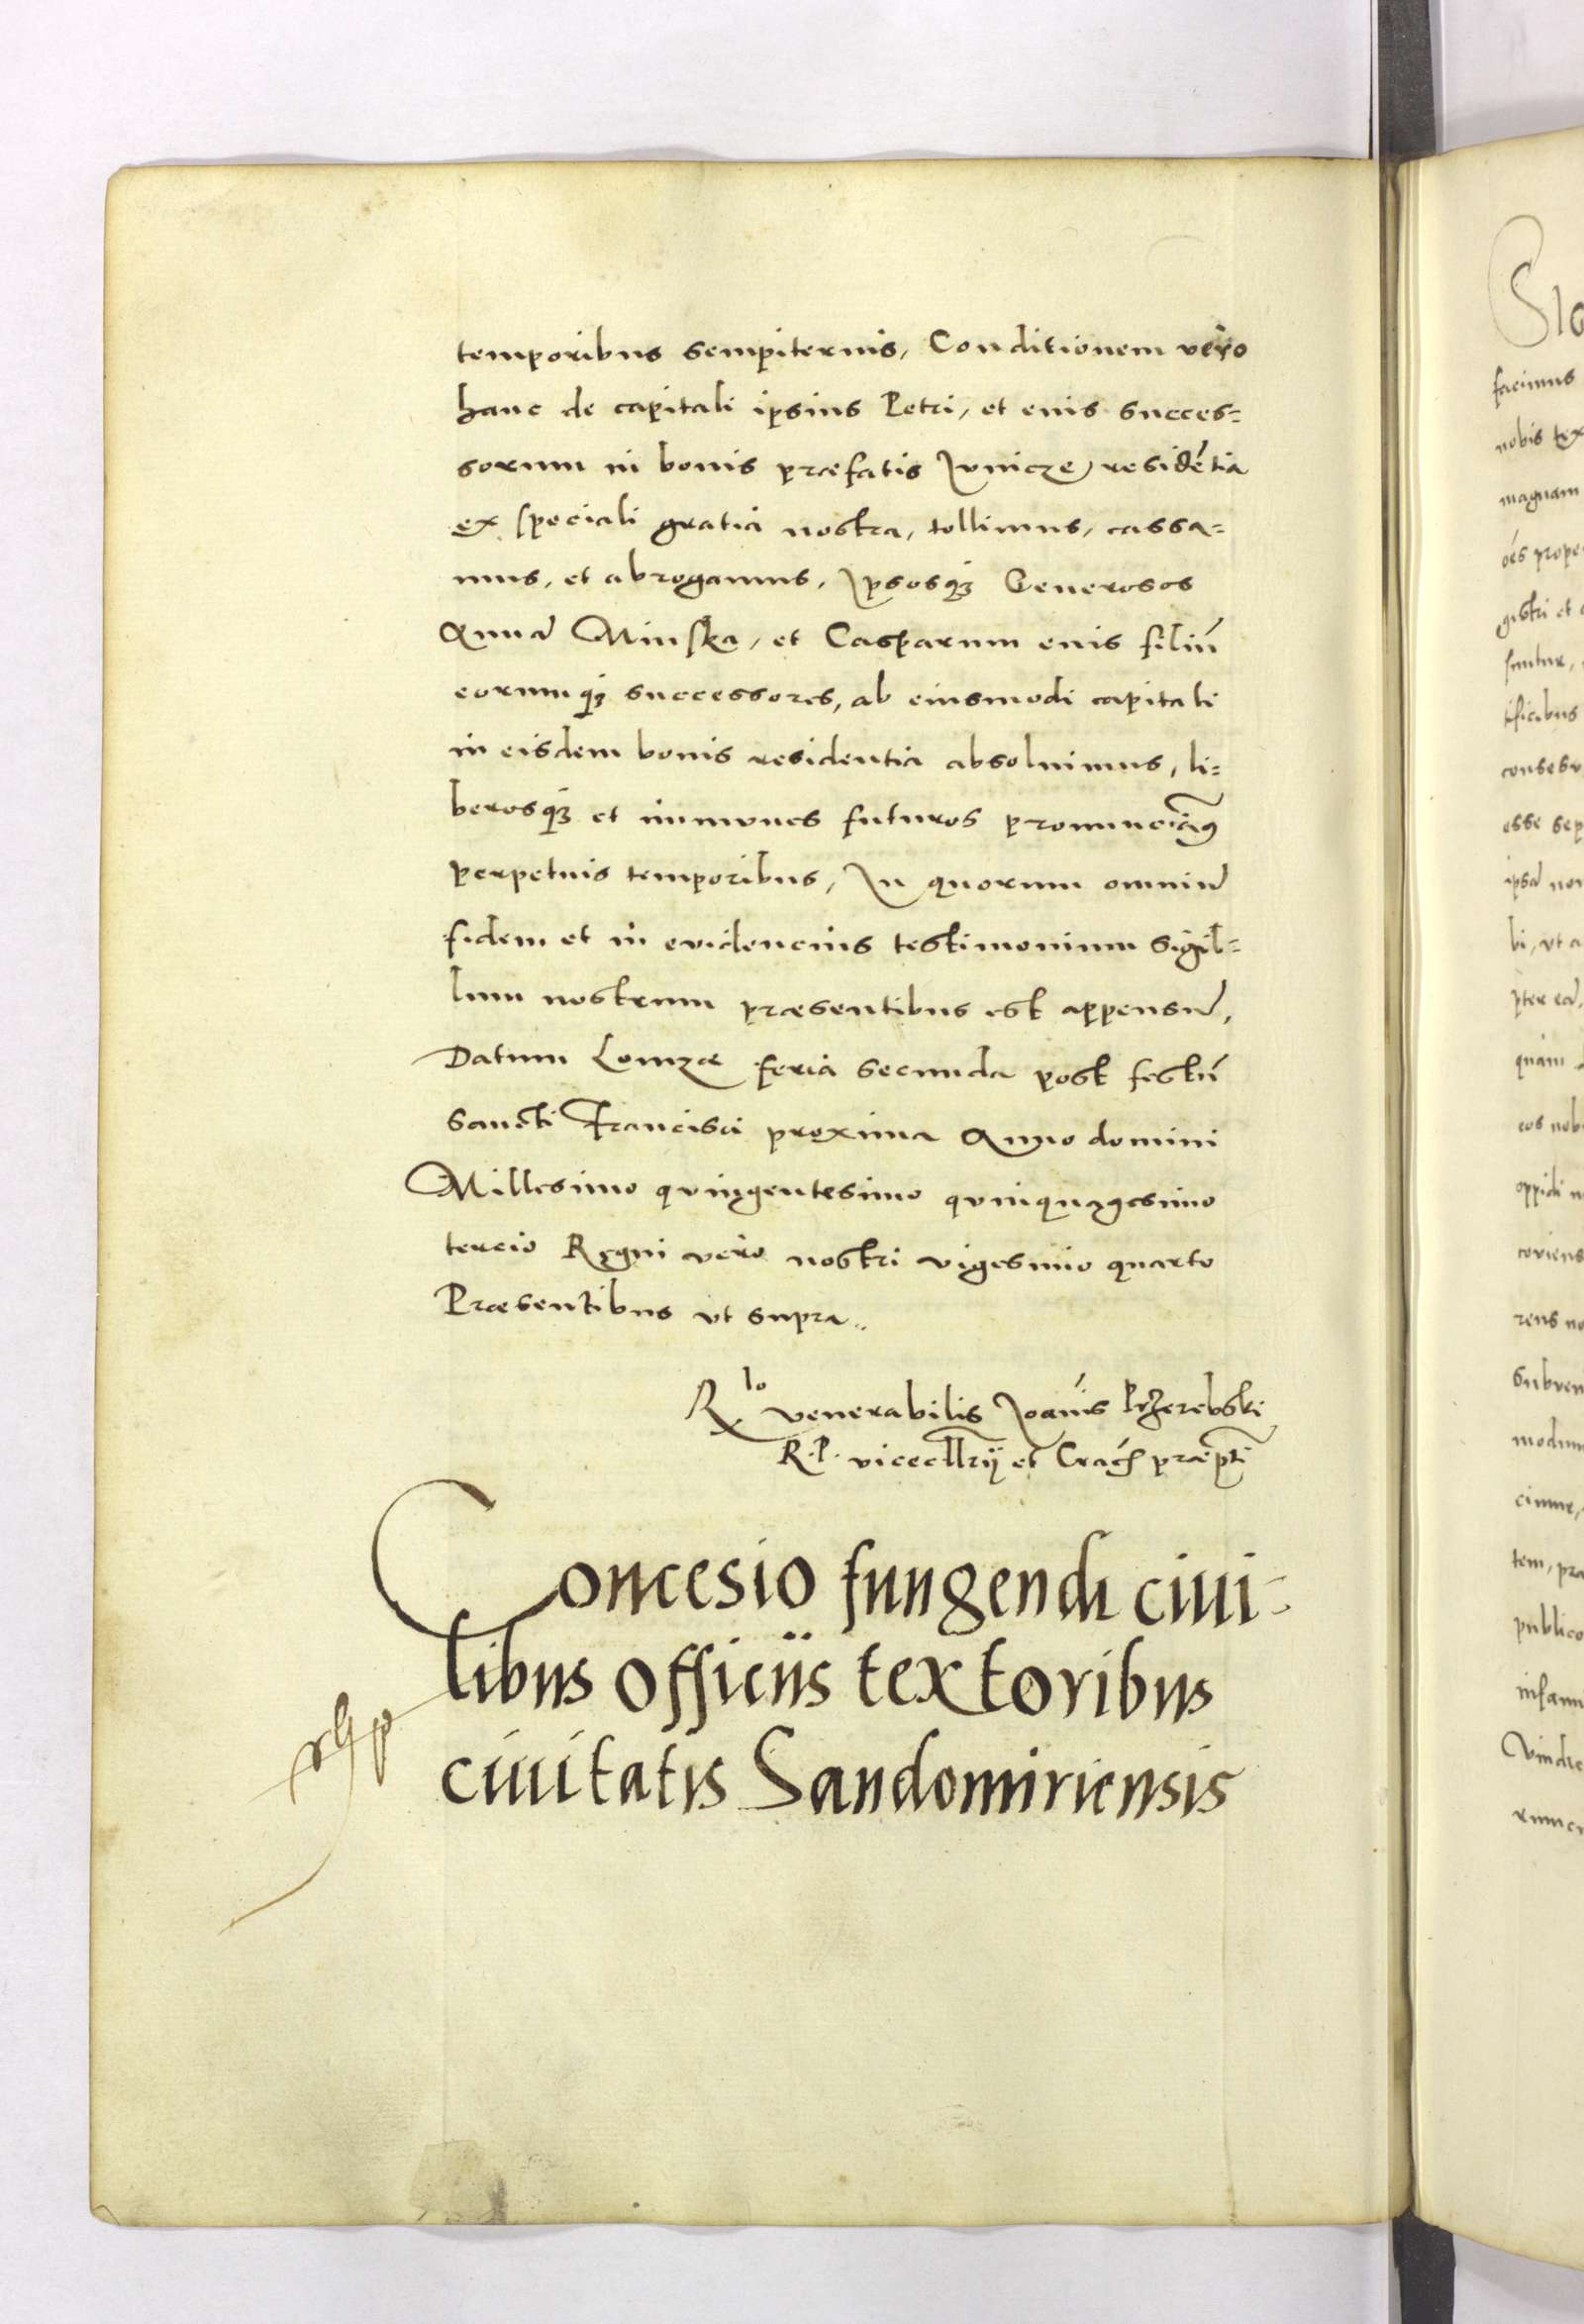 temporibus sempiternis, Conditionem vero
hanc de capitali ipsius Petri, et euis succes=
sorum in bonis præfatis Jvnicze residētia
ex speciali gratia nostra, tollimus, cassa=
mus, et abrogamus, Jpsosqꝫ Generosos
Annā Minska, et Casparum euis filiū
eorumqꝫ successores, ab eiusmodi capitali
in eisdem bonis residentia absoluimus, li=
berosqꝫ et immunes futuros pronunciāꝰ
perpetuis temporibus, Jn quorum omniū
fidem et in evidencius testimonium sigil=
lum nostrum præsentibus est appensū,
Datum Lomzæ feria secunda post festū
sancti Francisci proxima Anno domini
Millesimo qvingentesimo qvinquagesimo
tercio Regni vero nostri vigesimo quarto
Præsentibus vt supra..
R lo venerabilis Joānis Przerebski
R. P. vicecllrij et præpti
Concesio fungendi ciui-
libus officiis textoribus
ciuitatis Sandomiriensis
facimus
nobis tex
magnam
oēs prope
gistri et
tificibus
esse sep
ipsā non
li, vt a
quam
eos nob
oppidi n
rens no
Subven
modum
tem, pra
publico